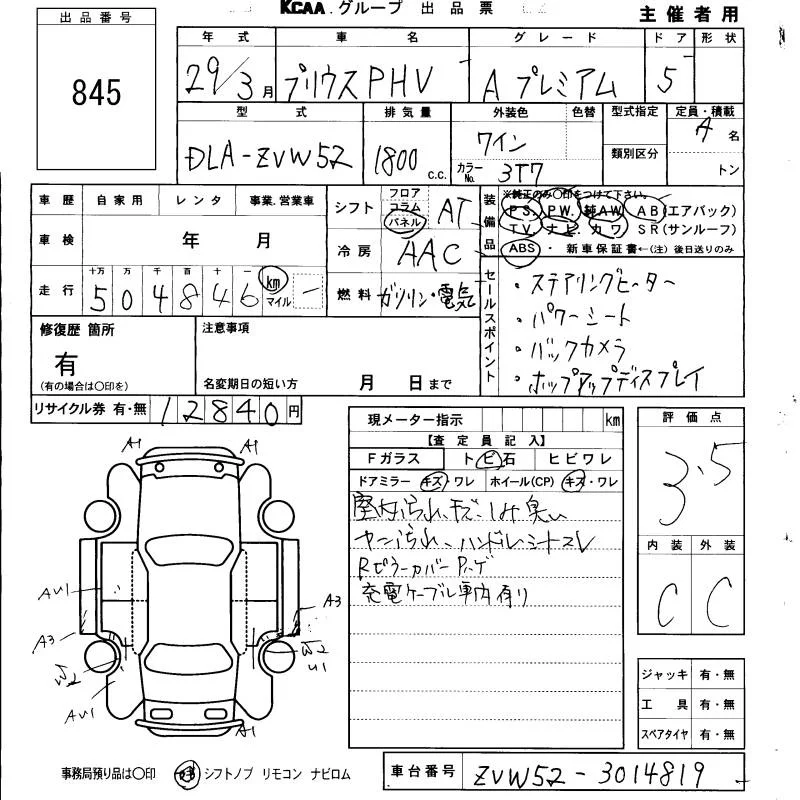 KCAA.グループ 出品票
主催者用
出品番号
845
年式 車名 グレード ドア 形状
29/3月 プリウスPHV A プレミアム 5
型式 排気量 外装色 色替 型式指定 定員・積載
DLA-ZVW52 1800 c.c. ワイン カラーNo. 3T7 類別区分 4名 トン
車歴 自家用 レンタ 事業.営業車
車検 年 月
走行 十万 万 千 百 十 一 km マイル
504846
シフト フロア コラム パネル AT
冷房 AAC
燃料 ガソリン・電気
装備品
※純正のみ○印をつけて下さい。
P.S. P.W. 純A.W. A B(エアバック)
T.V. ナビ. カワ S R(サンルーフ)
ABS ・ 新車保証書←(注)後日送りのみ
セールスポイント
・ステアリングヒーター
・パワーシート
・バックカメラ
・ホップアップディスプレイ
修復歴 箇所
有
(有の場合は○印を)
注意事項
名変期日の短い方 月 日まで
リサイクル券 有・無 12840円
現メーター指示 km
【査定員記入】
Fガラス ト ビ 石 ヒビワレ
ドアミラー キズ・ワレ ホイール(CP) キズ・ワレ
室内汚られ、キズ、しみ 臭い
ヤニ汚られ、ハンドル、シートスレ
Rピラーカバー ハゲ
充電ケーブル車内有り
評価点
3.5
内装 外装
C C
A1 A1
AU1
A3 A3
W2 W2
U1
AU1
A1
ジャッキ 有・無
工具 有・無
スペアタイヤ 有・無
事務局預り品は○印 シフトノブ リモコン ナビロム
車台番号 ZVW52-3014819